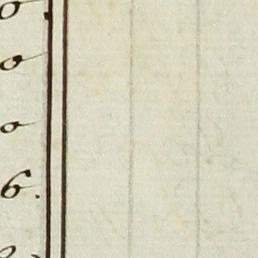 o
o
o
6.